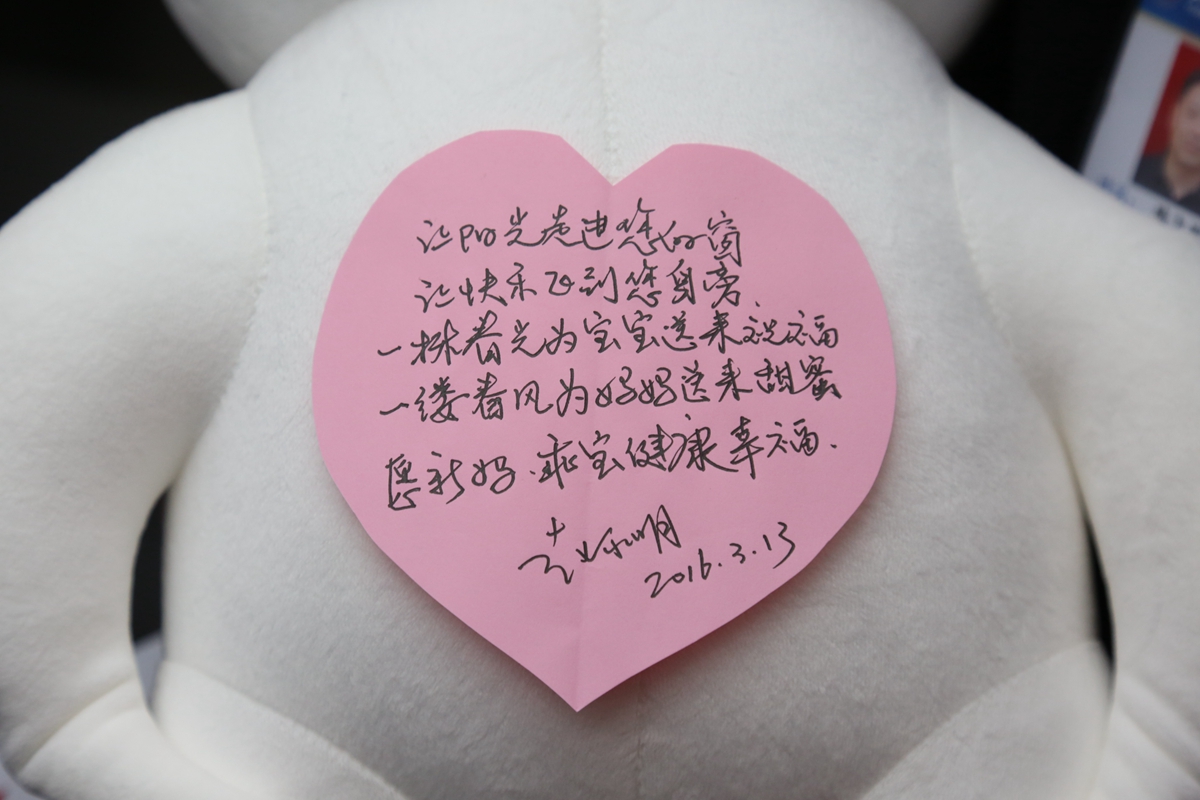 让阳光走进您的窗
让快乐飞到您身旁.
一株春光为宝宝送来祝福
一缕春风为妈妈送来甜蜜
愿新妈.乖宝健康幸福.
2016.3.13